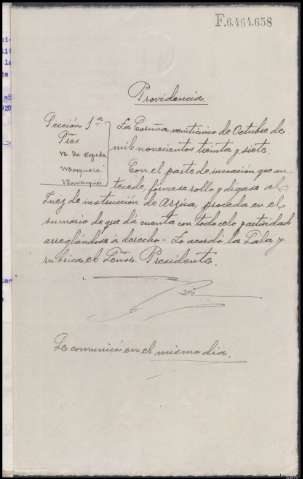 F.6.464.658
Providencia
Sección 1ª
Ptes
Mosquera
La Coruña veinticinco de Octubre de
mil novecientos treinta y siete
Con el parte de incoación que an
tecede fórmese rollo y dígase al
Juez de instrucción de Arzúa, proceda en el
sumario de que dá cuenta con todo celo y actividad
arreglándose a derecho- Lo acordó la Sala y
rubrica el Señor Presidente.
Se comunicó en el mismo día.